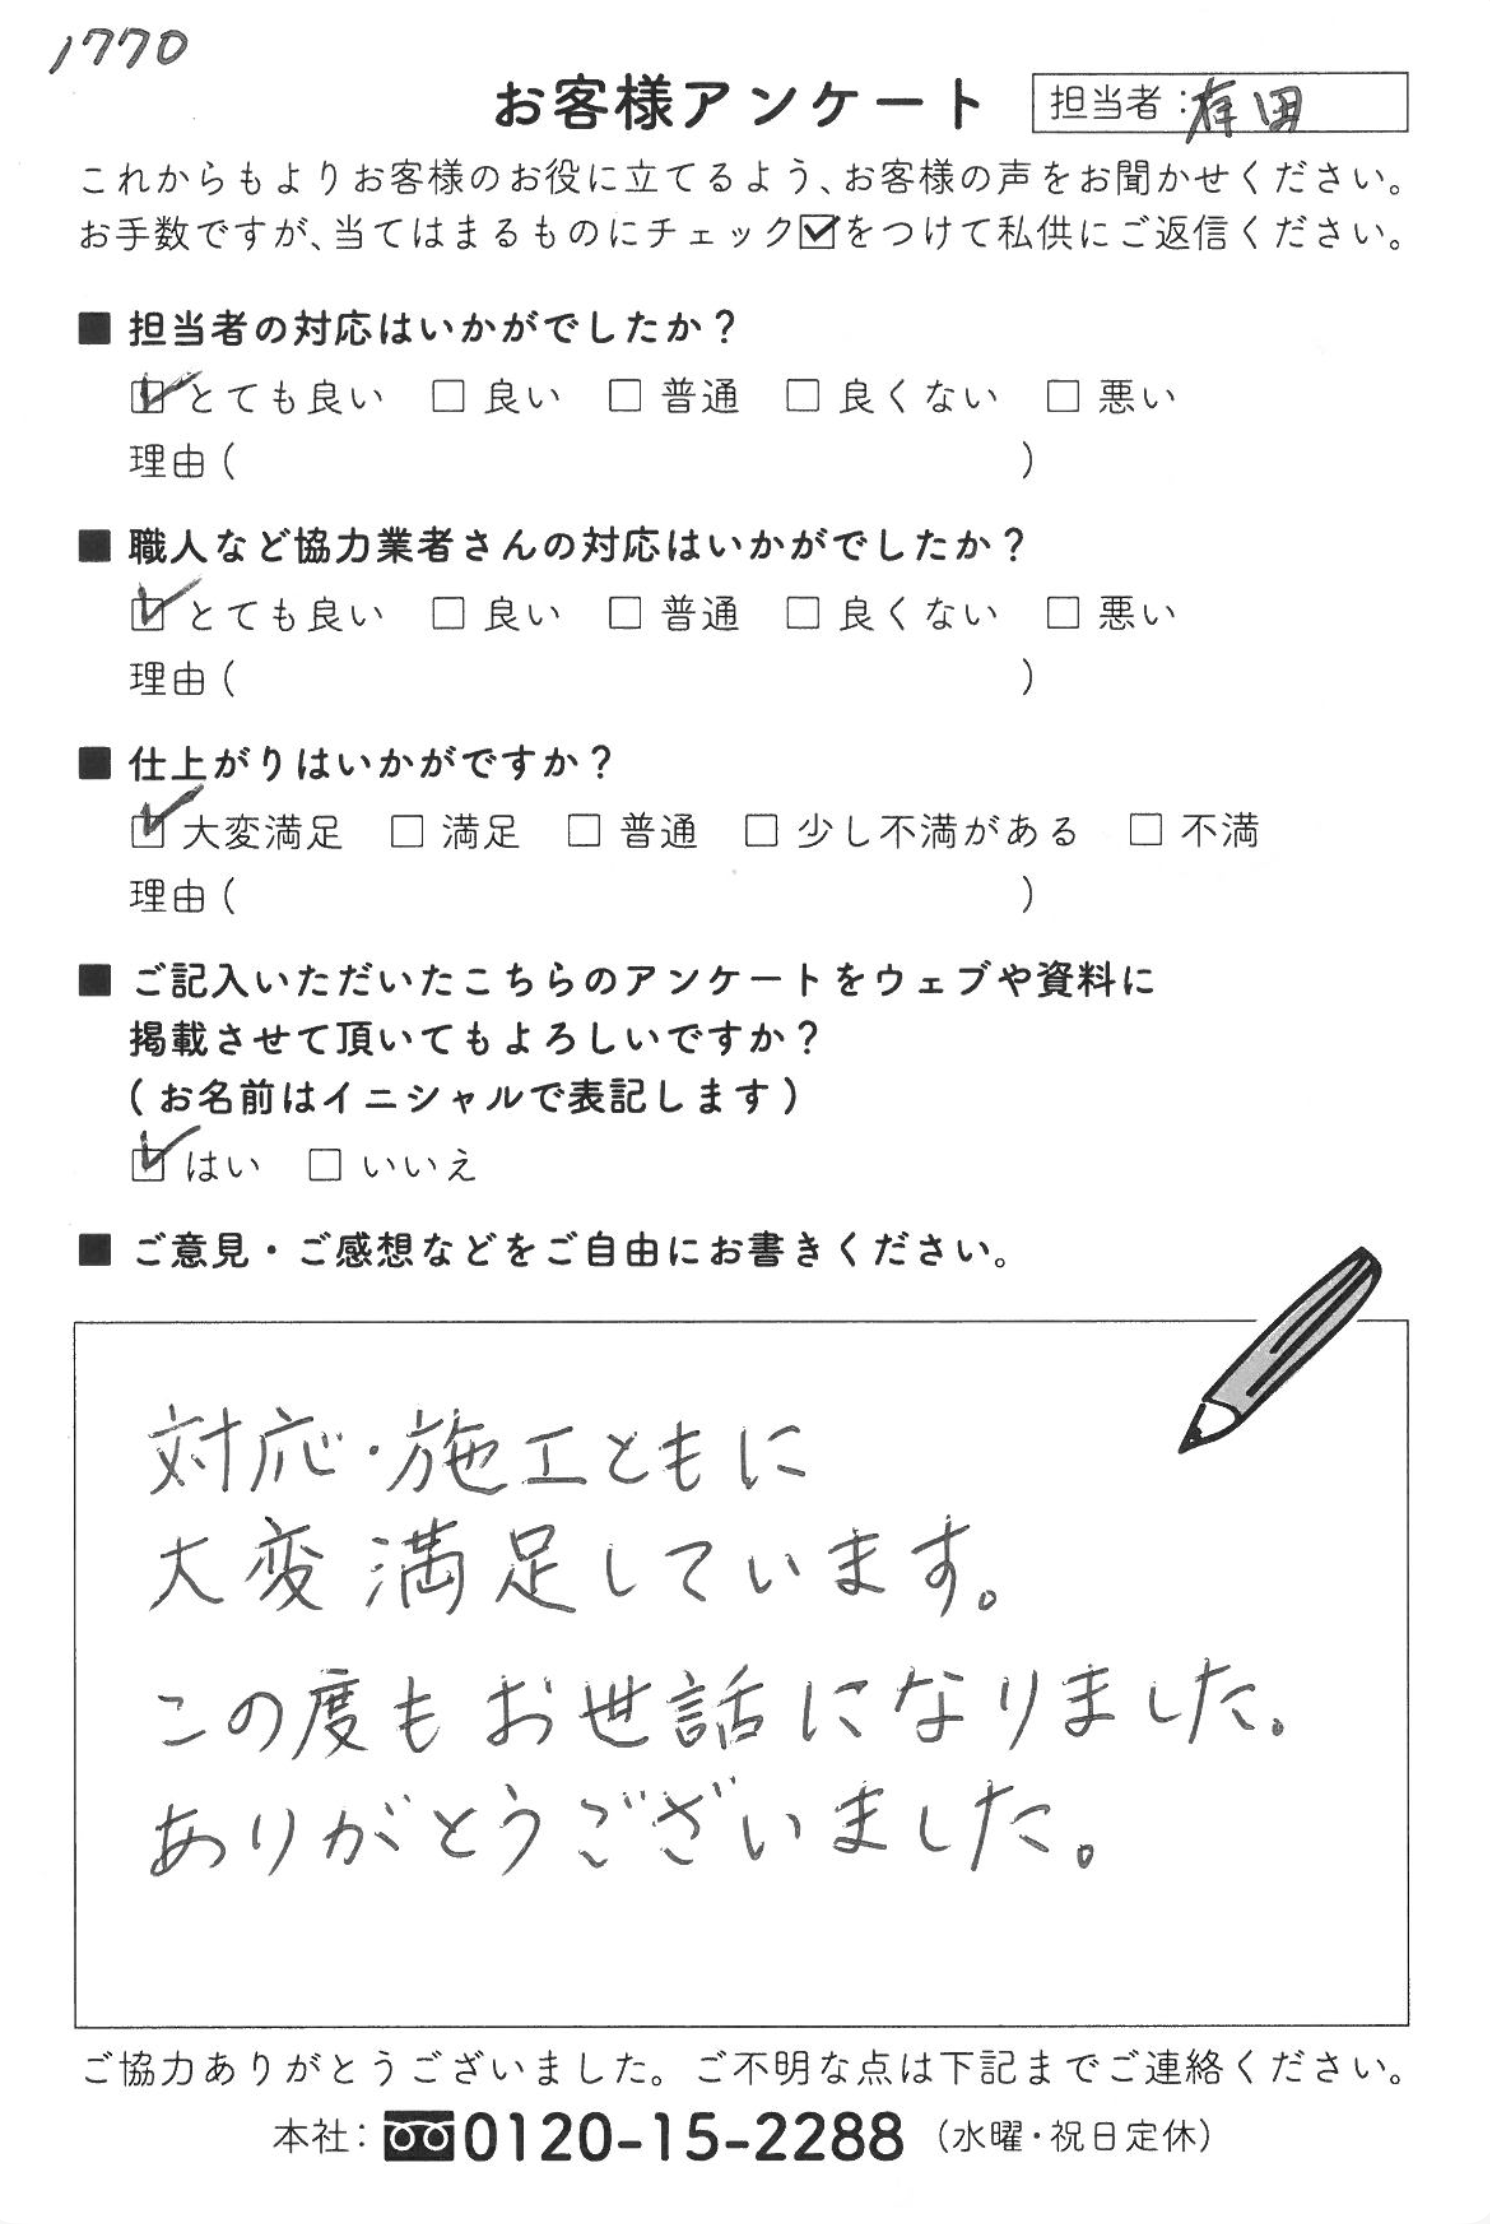 1770
お客様アンケート
担当者：有田
これからもよりお客様のお役に立てるよう、お客様の声をお聞かせください。
お手数ですが、当てはまるものにチェック☑をつけて私供にご返信ください。
■ 担当者の対応はいかがでしたか？
☑ とても良い □ 良い □ 普通 □ 良くない □ 悪い
理由（ ）
■ 職人など協力業者さんの対応はいかがでしたか？
☑ とても良い □ 良い □ 普通 □ 良くない □ 悪い
理由（ ）
■ 仕上がりはいかがですか？
☑ 大変満足 □ 満足 □ 普通 □ 少し不満がある □ 不満
理由（ ）
■ ご記入いただいたこちらのアンケートをウェブや資料に
掲載させて頂いてもよろしいですか？
（お名前はイニシャルで表記します）
☑ はい □ いいえ
■ ご意見・ご感想などをご自由にお書きください。
対応・施工ともに
大変満足しています。
この度もお世話になりました。
ありがとうございました。
ご協力ありがとうございました。ご不明な点は下記までご連絡ください。
本社：0120-15-2288（水曜・祝日定休）